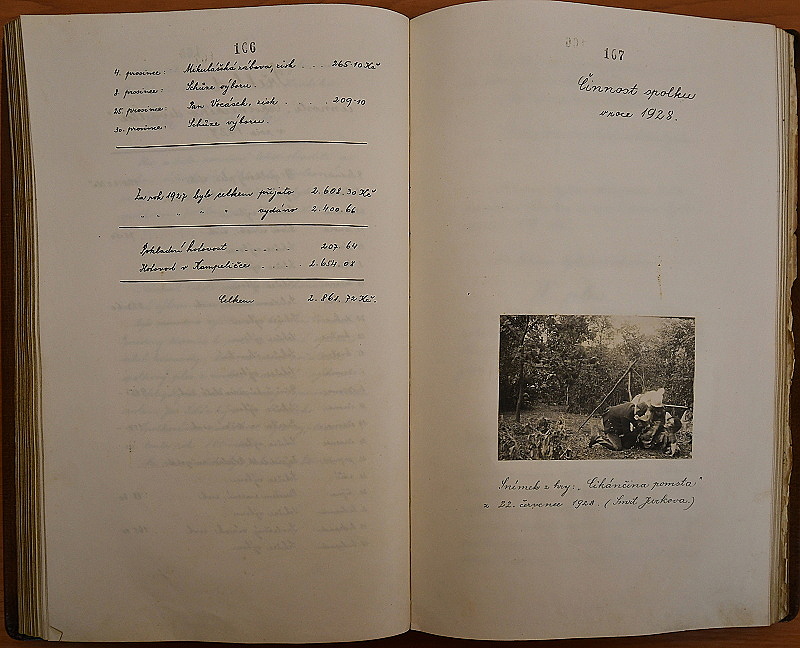 106
4. prosince: Mikulášská zábava, zisk . . . 265·10 Kč
8. prosince: Schůze výboru.
25. prosince: Pan Vocásek, zisk . . . . . 209·10
30. prosince: Schůze výboru.
Za rok 1927 bylo celkem přijato 2.608.30 Kč
" " " " " vydáno 2.400.66
Pokladní hotovost . . . . . . 207.64
Hotovost v Kampeličce . . . . . 2.654.08
Celkem 2.861.72 Kč.
107
Činnost spolku
v roce 1928.
Snímek z hry: „Cikánčina pomsta"
z 22. července 1928. (Smrt Jurkova.)